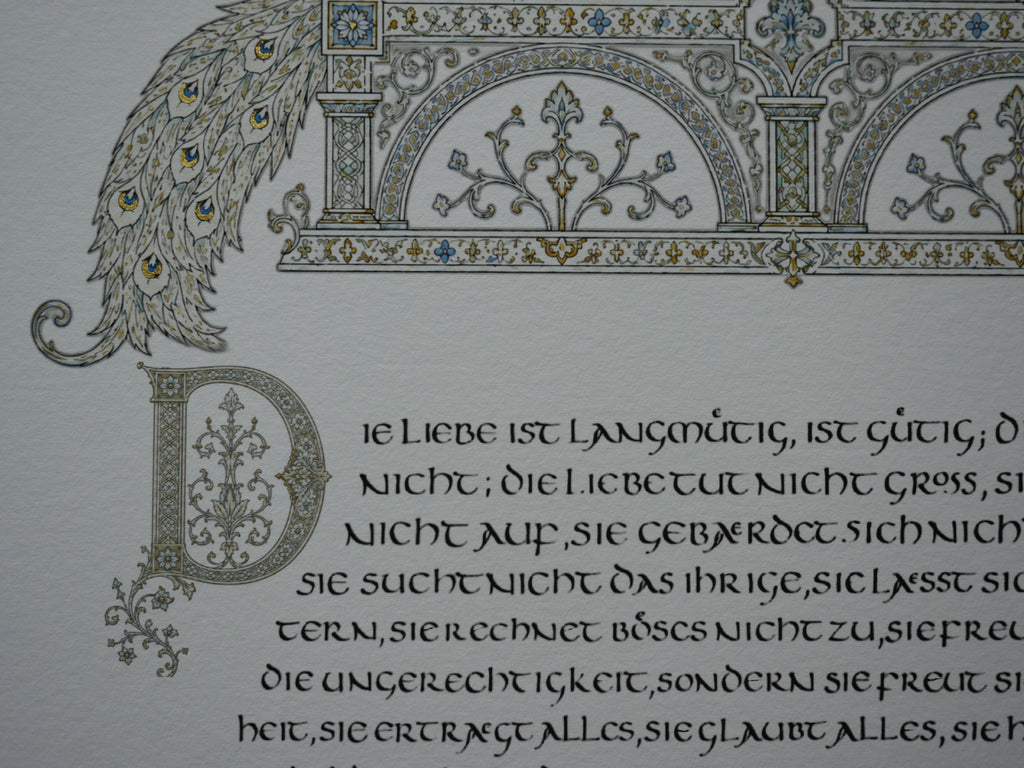 DIE LIEBE IST LANGMÜTIG, IST GÜTIG; D
NICHT; DIE LIEBE TUT NICHT GROSS, SI
NICHT AUF, SIE GEBAERDET SICH NICH
SIE SUCHT NICHT DAS IHRIGE, SIE LAESST SIC
TERN, SIE RECHNET BÖSES NICHT ZU, SIE FREU
DIE UNGERECHTIGKEIT, SONDERN SIE FREUT SI
HEIT, SIE ERTRAEGT ALLES, SIE GLAUBT ALLES, SIE H